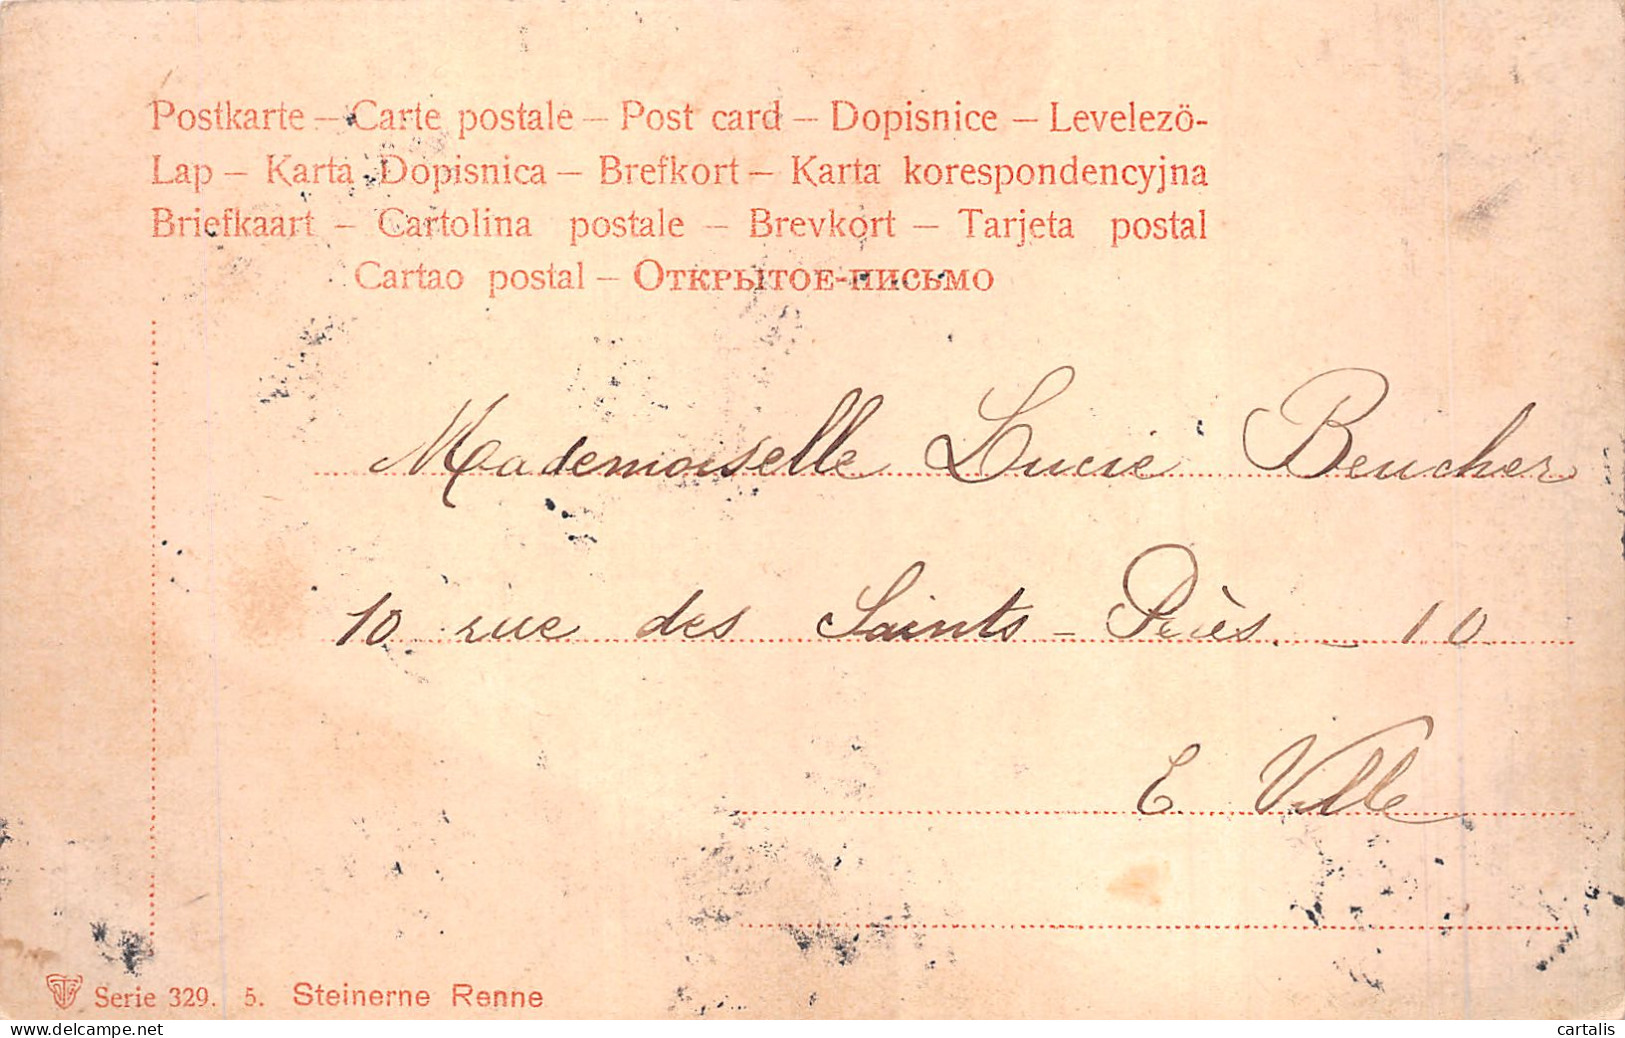 Postkarte – Carte postale – Post card – Dopisnice – Levelezö-
Lap – Karta Dopisnica – Brefkort – Karta korespondencyjna
Briefkaart – Cartolina postale – Brevkort – Tarjeta postal
Cartao postal – Открытое-письмо
Mademoiselle Lucie Beucher
10 rue des Saints-Pères. – 10
E. Ville
Serie 329. 5. Steinerne Renne
cartalis